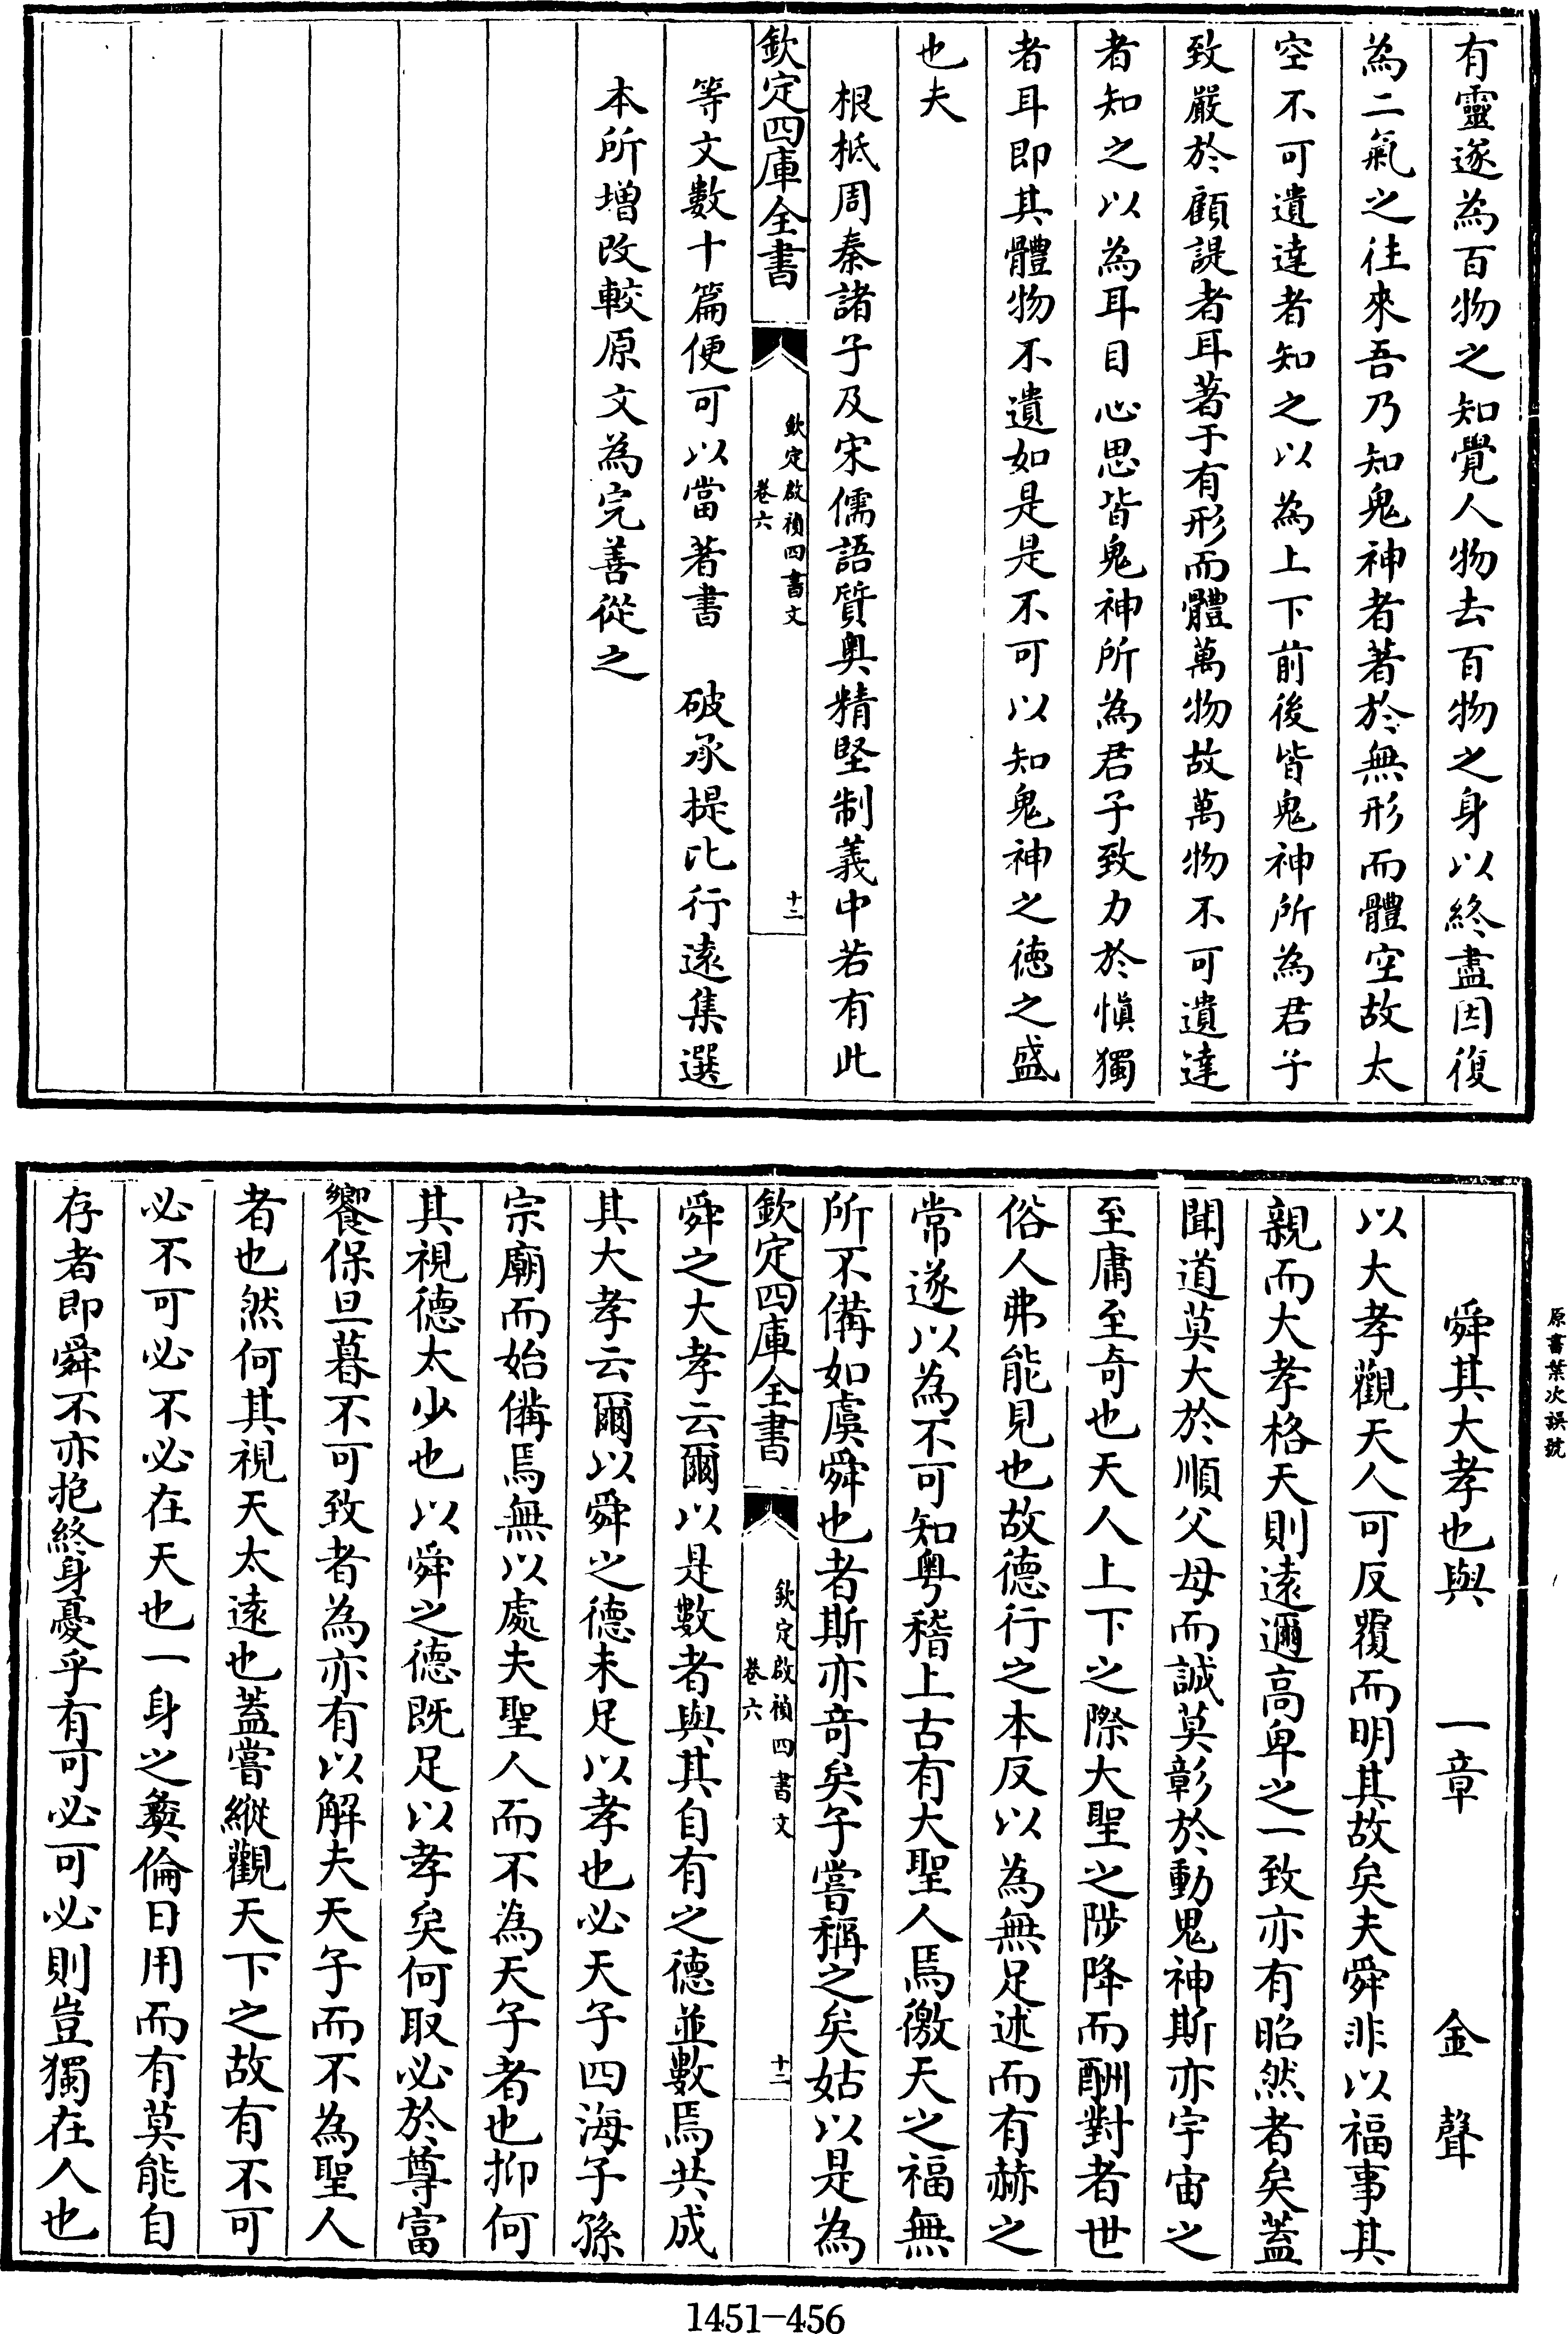 有靈遂為百物之知覺人物去百物之身以終盡因復
為二氣之往來吾乃知鬼神者著於無形而體空故太
空不可遺達者知之以為上下前後皆鬼神所為君子
致嚴於顧諟者耳著于有形而體萬物故萬物不可遺達
者知之以為耳目心思皆鬼神所為君子致力於慎獨
者耳即其體物不遺如是是不可以知鬼神之德之盛
也夫
根柢周秦諸子及宋儒語質奥精堅制義中若有此
欽定四庫全書
欽定啟禎四書文
卷六
十二
等文數十篇便可以當著書　破承提比行遠集選
本所增改較原文為完善從之
原書葉次誤號
舜其大孝也與　一章　金聲
以大孝觀天人可反覆而明其故矣夫舜非以福事其
親而大孝格天則遠邇高卑之一致亦有昭然者矣蓋
聞道莫大於順父母而誠莫彰於動鬼神斯亦宇宙之
至庸至奇也天人上下之際大聖之陟降而酬對者世
俗人弗能見也故德行之本反以為無足述而有赫之
常遂以為不可知粤稽上古有大聖人焉徼天之福無
所不備如虞舜也者斯亦竒矣子嘗稱之矣姑以是為
欽定四庫全書
欽定啟禎四書文
卷六
十二
舜之大孝云爾以是數者與其自有之德並數焉共成
其大孝云爾以舜之德未足以孝也必天子四海子孫
宗廟而始備焉無以處夫聖人而不為天子者也抑何
其視德太少也以舜之德既足以孝矣何取必於尊富
饗保旦暮不可致者為亦有以解夫天子而不為聖人
者也然何其視天太遠也蓋嘗縱觀天下之故有不可
必不可必不必在天也一身之彛倫日用而有莫能自
存者即舜不亦抱終身憂乎有可必可必則豈獨在人也
1451-456